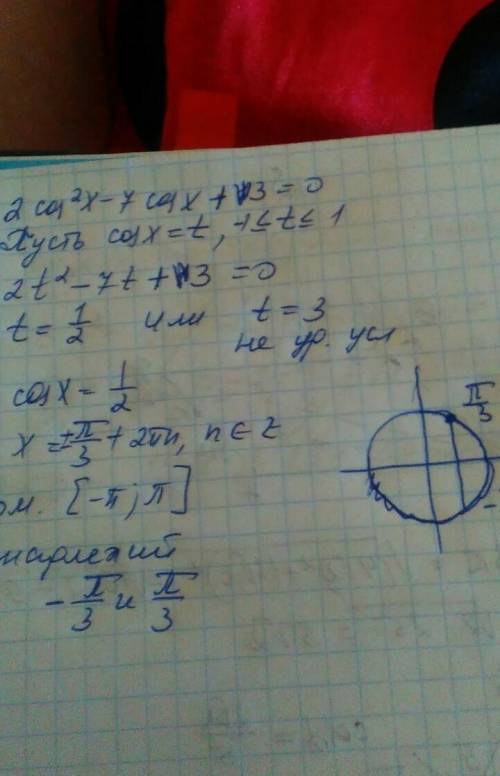 2 cos²x - 7 cos x + 3 = 0
Пусть cos x = t, -1 ≤ t ≤ 1
2t² - 7t + 3 = 0
t = 1/2 или t = 3
не ур. усл
cos x = 1/2
x = ±π/3 + 2πn, n ∈ Z
π/3
[-π; π]
-π/3 и π/3